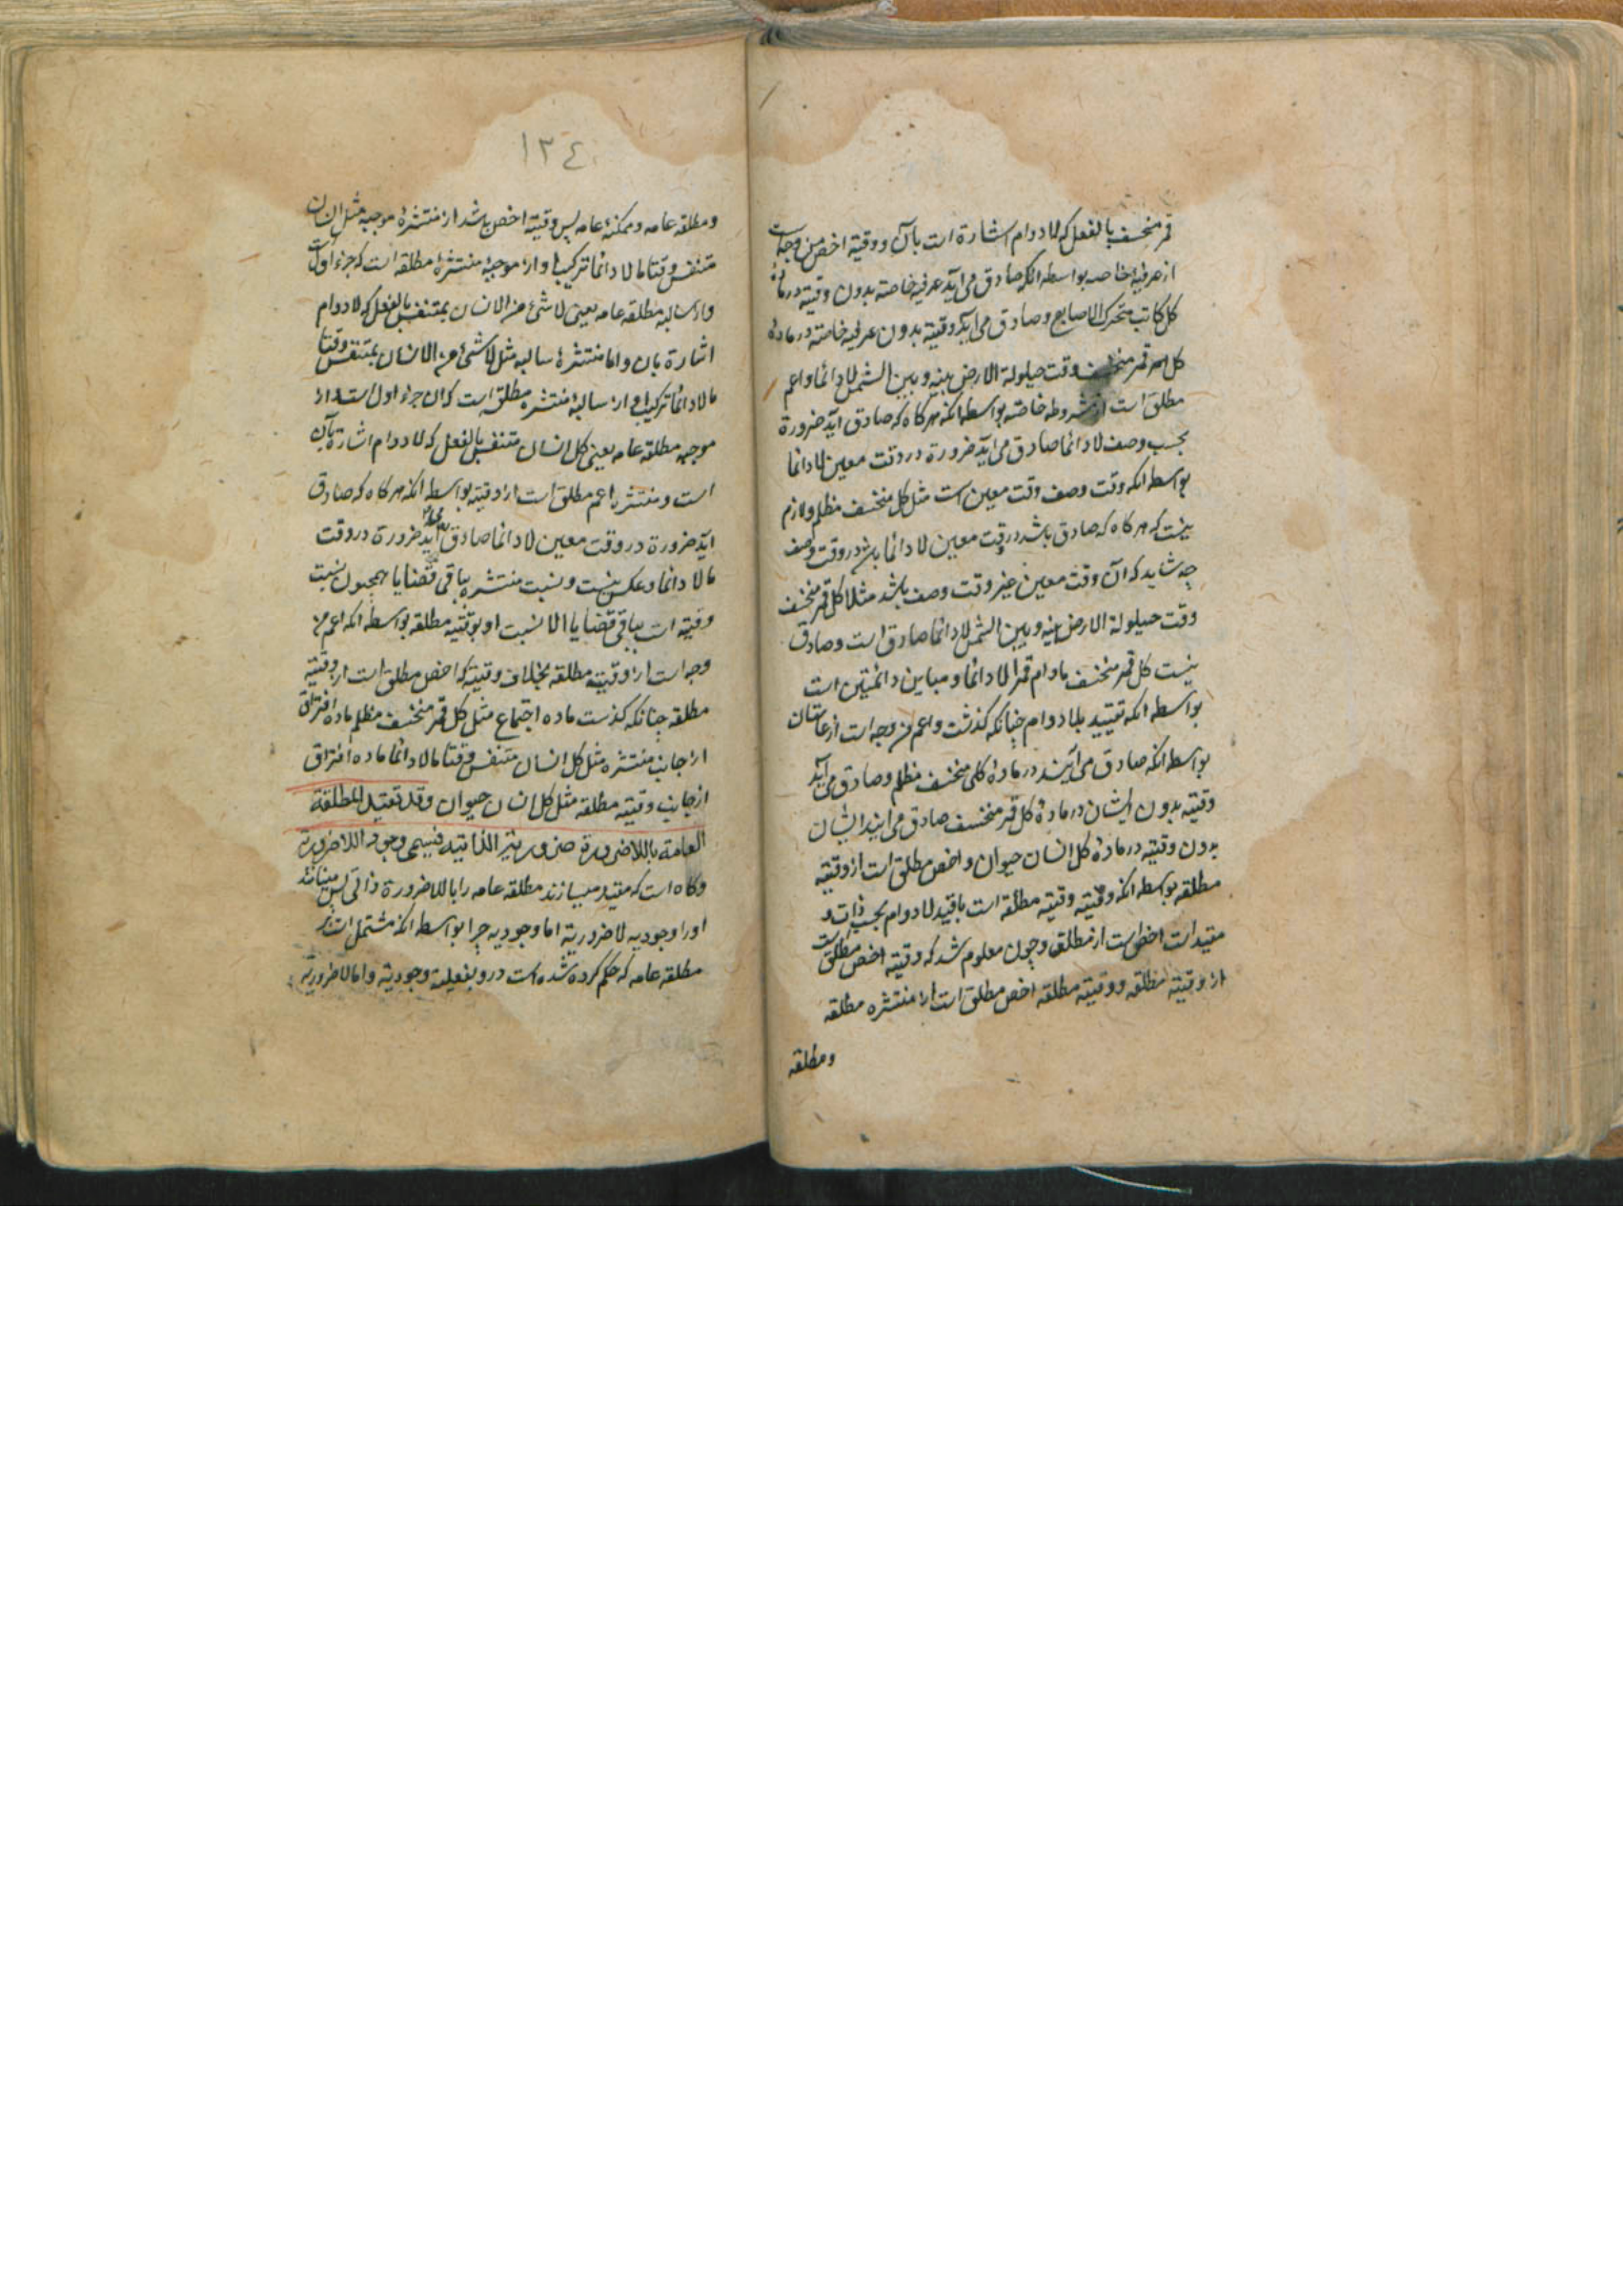 قمر منخسف بالفعل که لادوام اشارة است بآن و وقتیه اخص من وجه است
از عرفیه خاصه بواسطه انکه صادق می آید عرفیه خاصته بدون وقتیه در ماده
کل کاتب متحرک الاصابع و صادق می آید وقتیه بدون عرفیه خاصته در مادهٔ
کل قمر منخسف وقت حیلولة الارض بینه و بین الشمس لادائما و اعم
مطلق است از مشروطه خاصته بواسطه انکه هرکاه که صادق آید ضرورة
بحسب وصف لادائما صادق می اید ضرورة در وقت معین لادائما
بواسطه انکه وقت وصف وقت معین است مثل کل منخسف مظلم و لازم
نیست که هرکاه که صادق باشد در وقت معین لادائما باشد در وقت وصف
چه شاید که آن وقت معین غیر وقت وصف باشد مثلا کل قمر منخسف
وقت حیلولة الارض بینه و بین الشمس لادائما صادق است و صادق
نیست کل قمر منخسف مادام قمرا لادائما و مباین دائمتین است
بواسطه انکه تقیید بلادوام چنانکه کذشت و اعم من وجه است از عامتان
بواسطه انکه صادق می آیند در مادهٔ کل منخسف مظلم و صادق می آید
وقتیه بدون ایشان در مادهٔ کل قمر منخسف صادق می ایند ایشان
بدون وقتیه در مادهٔ کل انسان حیوان و اخص مطلق است از وقتیه
مطلقه بواسطه انکه وقتیه وقتیه مطلقه است باقید لادوام بحسب ذات و
مقید است اخص است از مطلق و چون معلوم شد که وقتیه اخص مطلق است
از وقتیه مطلقه و وقتیه مطلقه اخص مطلق است از منتشره مطلقه
ومطلقه
١٣٤
ومطلقه عامه و ممکنهٔ عامه پس وقتیه اخص باشد از منتشرهٔ موجبه مثل انسان
متنفس وقتا ما لادائما ترکیبها و از موجبهٔ منتشرهٔ مطلقه است که جزء اول است
و از سالبه مطلقه عامه یعنی لا شئ من الانسان بمتنفس بالفعل که لادوام
اشارة بان و اما منتشرهٔ سالبه مثل لا شئ من الانسان بمتنفس وقتا
ما لادائما ترکیبها از سالبهٔ منتشره مطلقه است که ان جزء اول است و از
موجبه مطلقه عامه یعنی کل انسان متنفس بالفعل که لادوام اشارة بآن
است و منتشره اعم مطلق است از وقتیه بواسطه انکه هرکاه که صادق
اید ضرورة در وقت معین لادائما صادق آید ضرورة در وقت
ما لادائما و عکس نیست و نسبت منتشره بباقی قضایا همچون نسبت
وقتیه است بباقی قضایا الا نسبت او بوقتیه مطلقه بواسطه انکه اعم من
وجه است از وقتیه مطلقه بخلاف وقتیه که اخص مطلق است از وقتیه
مطلقه چنانکه کذشت ماده اجتماع مثل کل قمر منخسف مظلم ماده افتراق
از جانب منتشره مثل کل انسان متنفس وقتا ما لادائما ماده افتراق
از جانب وقتیه مطلقه مثل کل انسان حیوان وقد تقید المطلقة
العامة باللاضرورة الذاتیه فیسمی وجودیة اللاضروریة
و کاه است که مقید میسازند مطلقه عامه را باللاضرورة ذاتی پس مینامند
اورا وجودیه لا ضروریة اما وجودیه چرا بواسطه انکه مشتمل است بر
مطلقه عامه که حکم کرده شده است درو بفعلیة وجودیة و اما لاضروریة